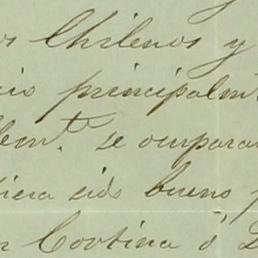 os Chilenos y
cio principalm
lem.te se ocuparo
tiera sido bueno p
n Cortina ó